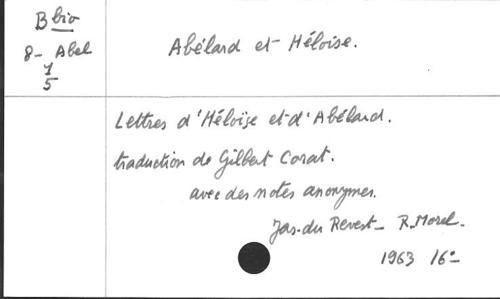 B bio
8- Abel
1
5
Abélard et Héloïse.
Lettres d'Héloïse et d'Abélard.
traduction de Gilbert Corat.
avec des notes anonymes.
Jas-du Revest- R. Morel-
1963 16°